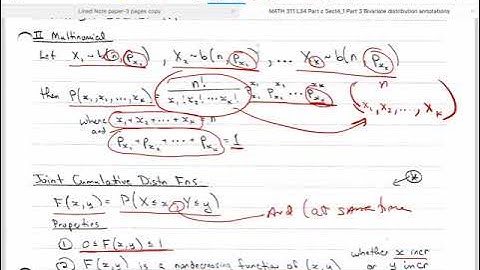 Lined Note paper-3 pages copy
MATH 311 L34 Part c Sect4_1 Part 3 Bivariate distribution annotations
II Multinomial
Let X₁ ~ b(n, p_{x₁}), X₂ ~ b(n, p_{x₂}), ... X_k ~ b(n, p_{x_k})
then P(x₁, x₂, ..., x_k) = n! / (x₁! x₂! ... x_k!) p_{x₁}^{x₁} p_{x₂}^{x₂} ... p_{x_k}^{x_k} (n x₁, x₂, ..., x_k)
where x₁ + x₂ + ... + x_k = n
and p_{x₁} + p_{x₂} + ... + p_{x_k} = 1
Joint Cumulative Distn Fns.
F(x,y) = P(X ≤ x, Y ≤ y) And (at same time
Properties
① 0 ≤ F(x,y) ≤ 1
② F(x,y) is a nondecreasing function of (x,y) whether x incr
or y incr